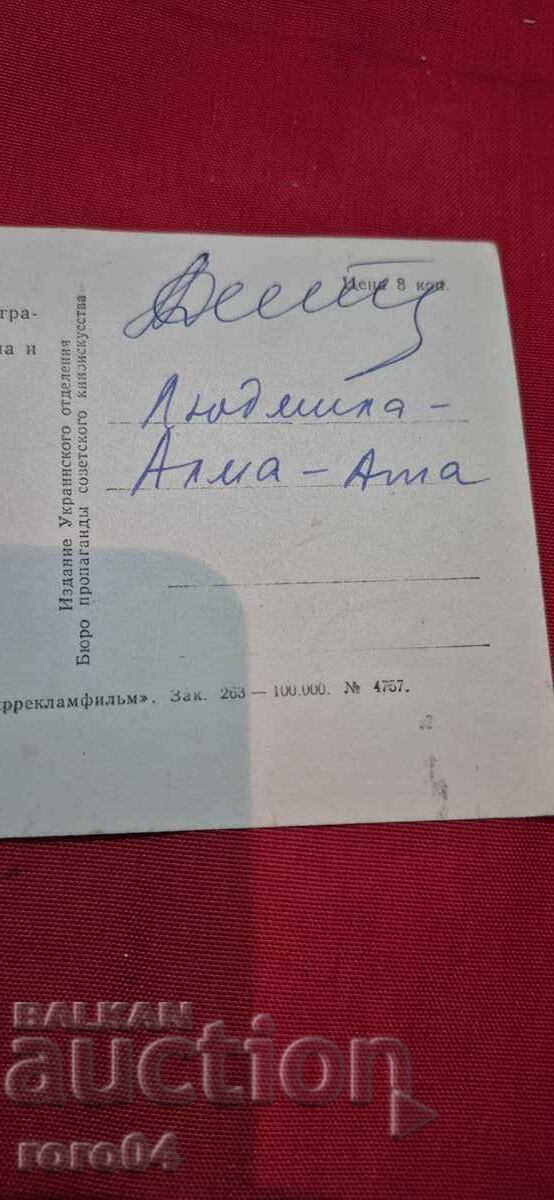 Цена 8 коп.
тра-
на и
Людмила -
Алма - Ата
Издание Украинского отделения
Бюро пропаганды советского киноискусства
ррекламфильм». Зак. 263 — 100.000. № 4757.
BALKAN
auction
roro04